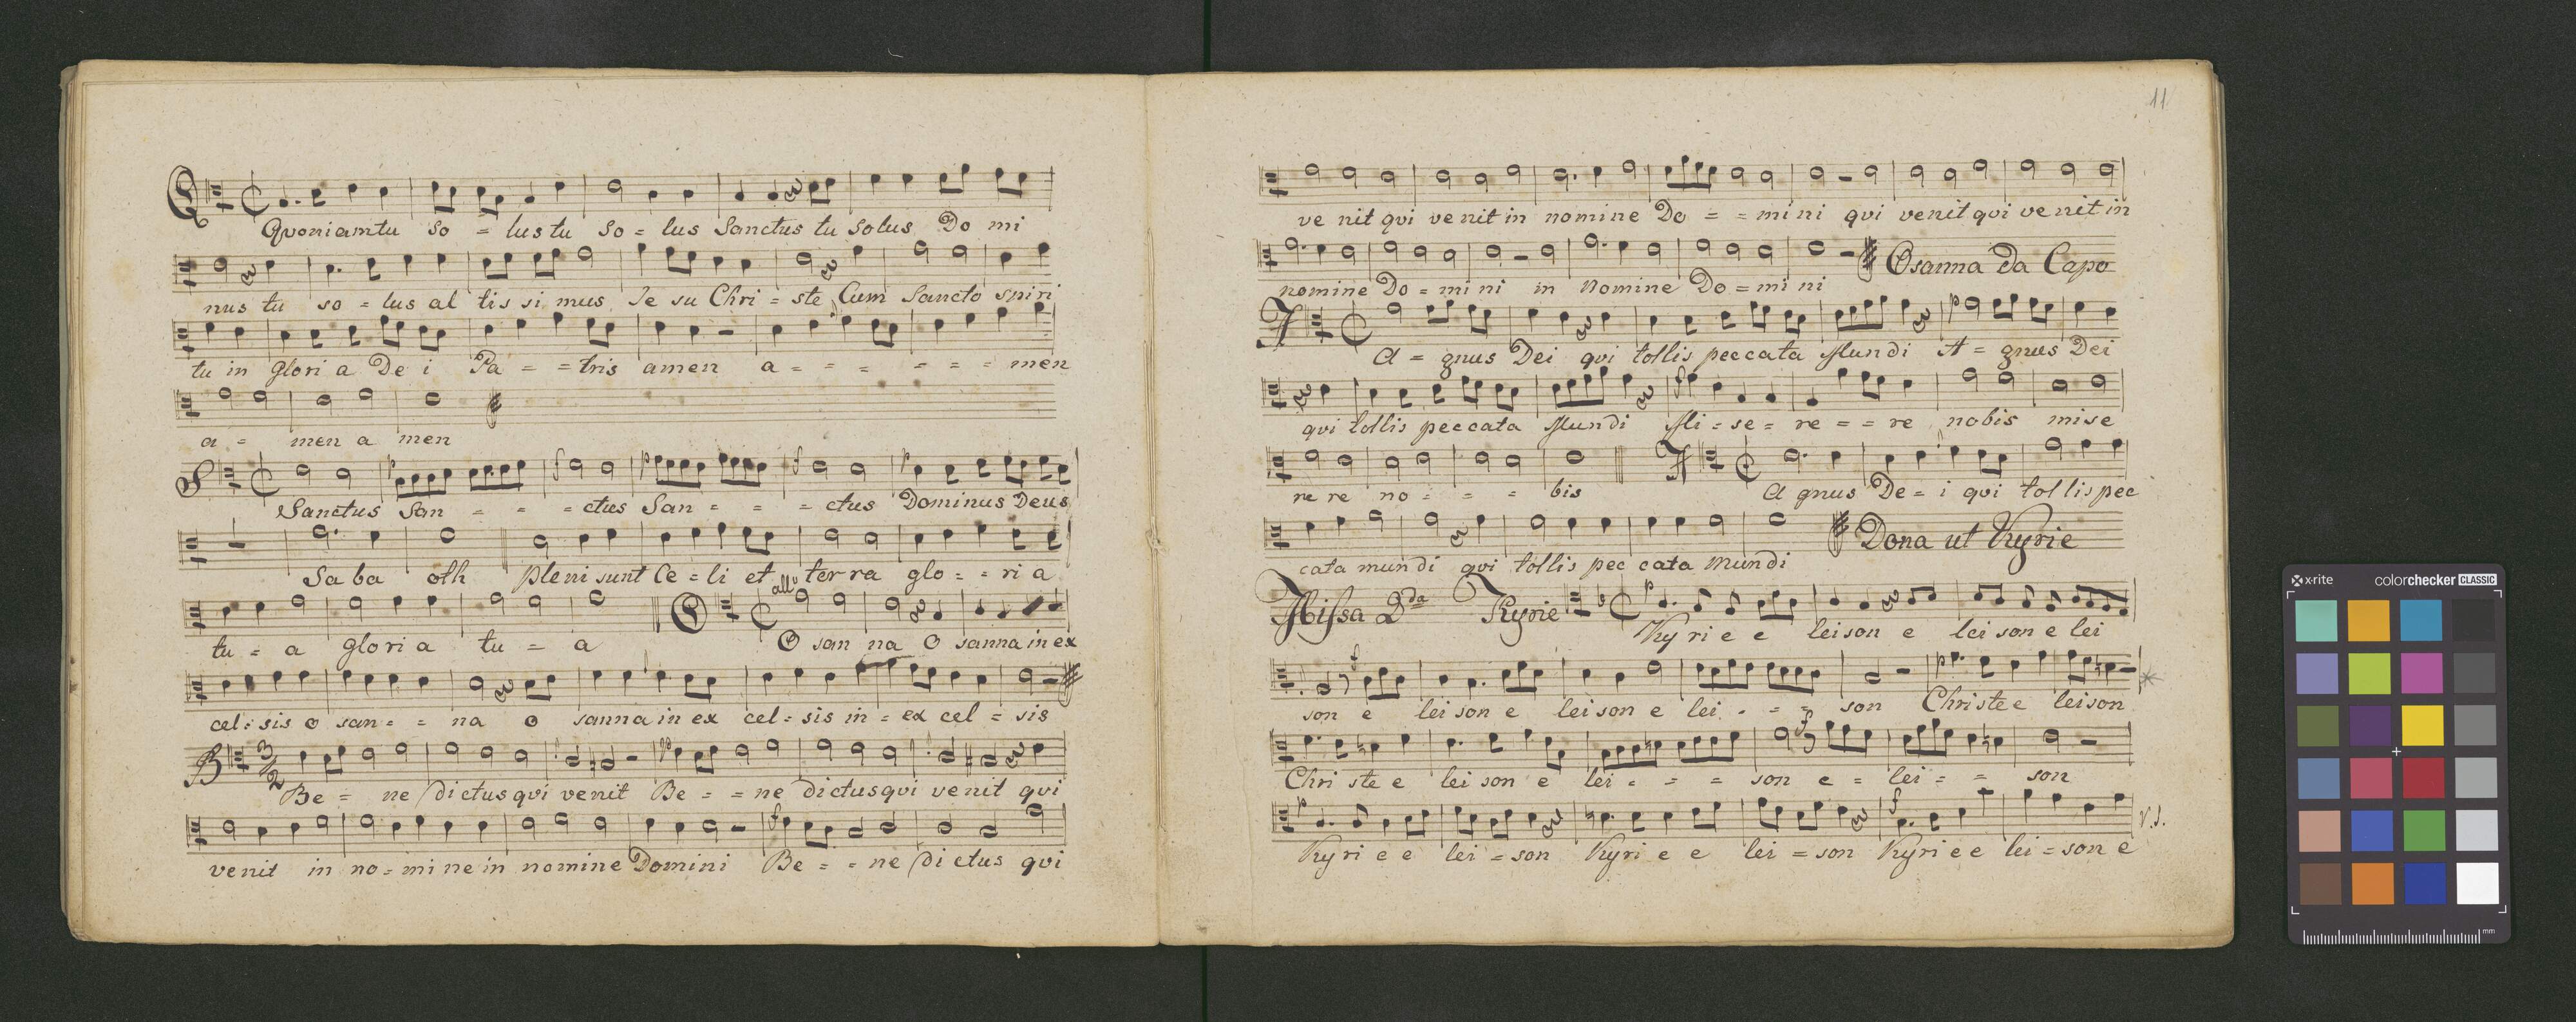 Quoniam tu so = lus tu so = lus Sanctus tu solus Do mi
nus tu so = lus al tis si mus Je su Chri = ste Cum Sancto spiri
tu in glori a De i Pa = = tris amen a = = = = = = men
a = men a men
S Sanctus San = = = ctus San = = = ctus Dominus Deus
Sa ba oth pleni sunt Ce = li et ter ra glo = = ri a
tu = a glori a tu = a O allo O san na O sanna in ex
cel = sis o san = = na o sanna in ex cel = sis in = ex cel = sis
B 3/2 Be = ne dictus qui venit Be = = ne dictus qui venit qui
venit in no = mi ne in nomine Domini Be = = ne dictus qui
11
ve nit qvi ve nit in nomine Do = = mi ni qvi venit qvi ve nit in
nomine Do = mi ni in Nomine Do = mi ni Osanna Da Capo
A = gnus Dei qvi tollis peccata Mundi A = gnus Dei
qvi tollis peccata Mundi Mi = se = re = = re nobis mise
re re no = = = bis A gnus De = i qvi tol lis pec
cata mundi qvi tollis pec cata mundi Dona ut Kyrie
Missa 2da Kyrie Ky ri e e leison e lei son e lei
son e lei son e lei son e lei = = = son Christe e leison
Chri ste e lei son e lei = = = son e = lei = = son
Ky ri e e lei = son Kyri e e lei = son Kyri e e lei = son e
V.S.
x-rite colorchecker CLASSIC
mm